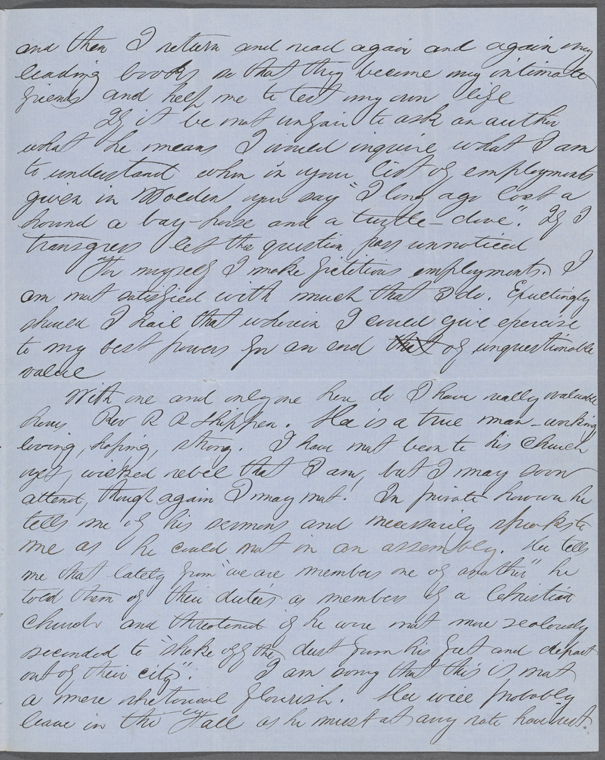 and then I return and read again and again my
leading books so that they become my intimate
friends and help me to test my own life
If it be not unfair to ask an author
what he means I would inquire what I am
to understand when in your list of employments
given in Walden you say "I long ago lost a
hound a bay-horse and a turtle-dove". If I
transgress let the question pass unnoticed
For myself I make fictitious employments. I
am not satisfied with much that I do. Exultingly
should I hail that wherein I could give exercise
to my best powers for an end that of unquestionable
value
With one and only one here do I have really valuable
hours, Rev R R Shippen. He is a true man - working
loving, hoping, strong. I have not been to his Church
yet, wicked rebel that I am, but I may soon
attend, though again I may not. In private however he
tells me of his sermons and necessarily speaks to
me as he could not in an assembly. He tells
me that lately from "we are members one of another" he
told them of their duties as members of a Christian
Church and threatened if he were not more zealously
seconded to "shake off the dust from his feet and depart
out of their city". I am sorry that this is not
a mere rhetorical flourish. He will probably
leave in the Fall as he must at any rate have rest.